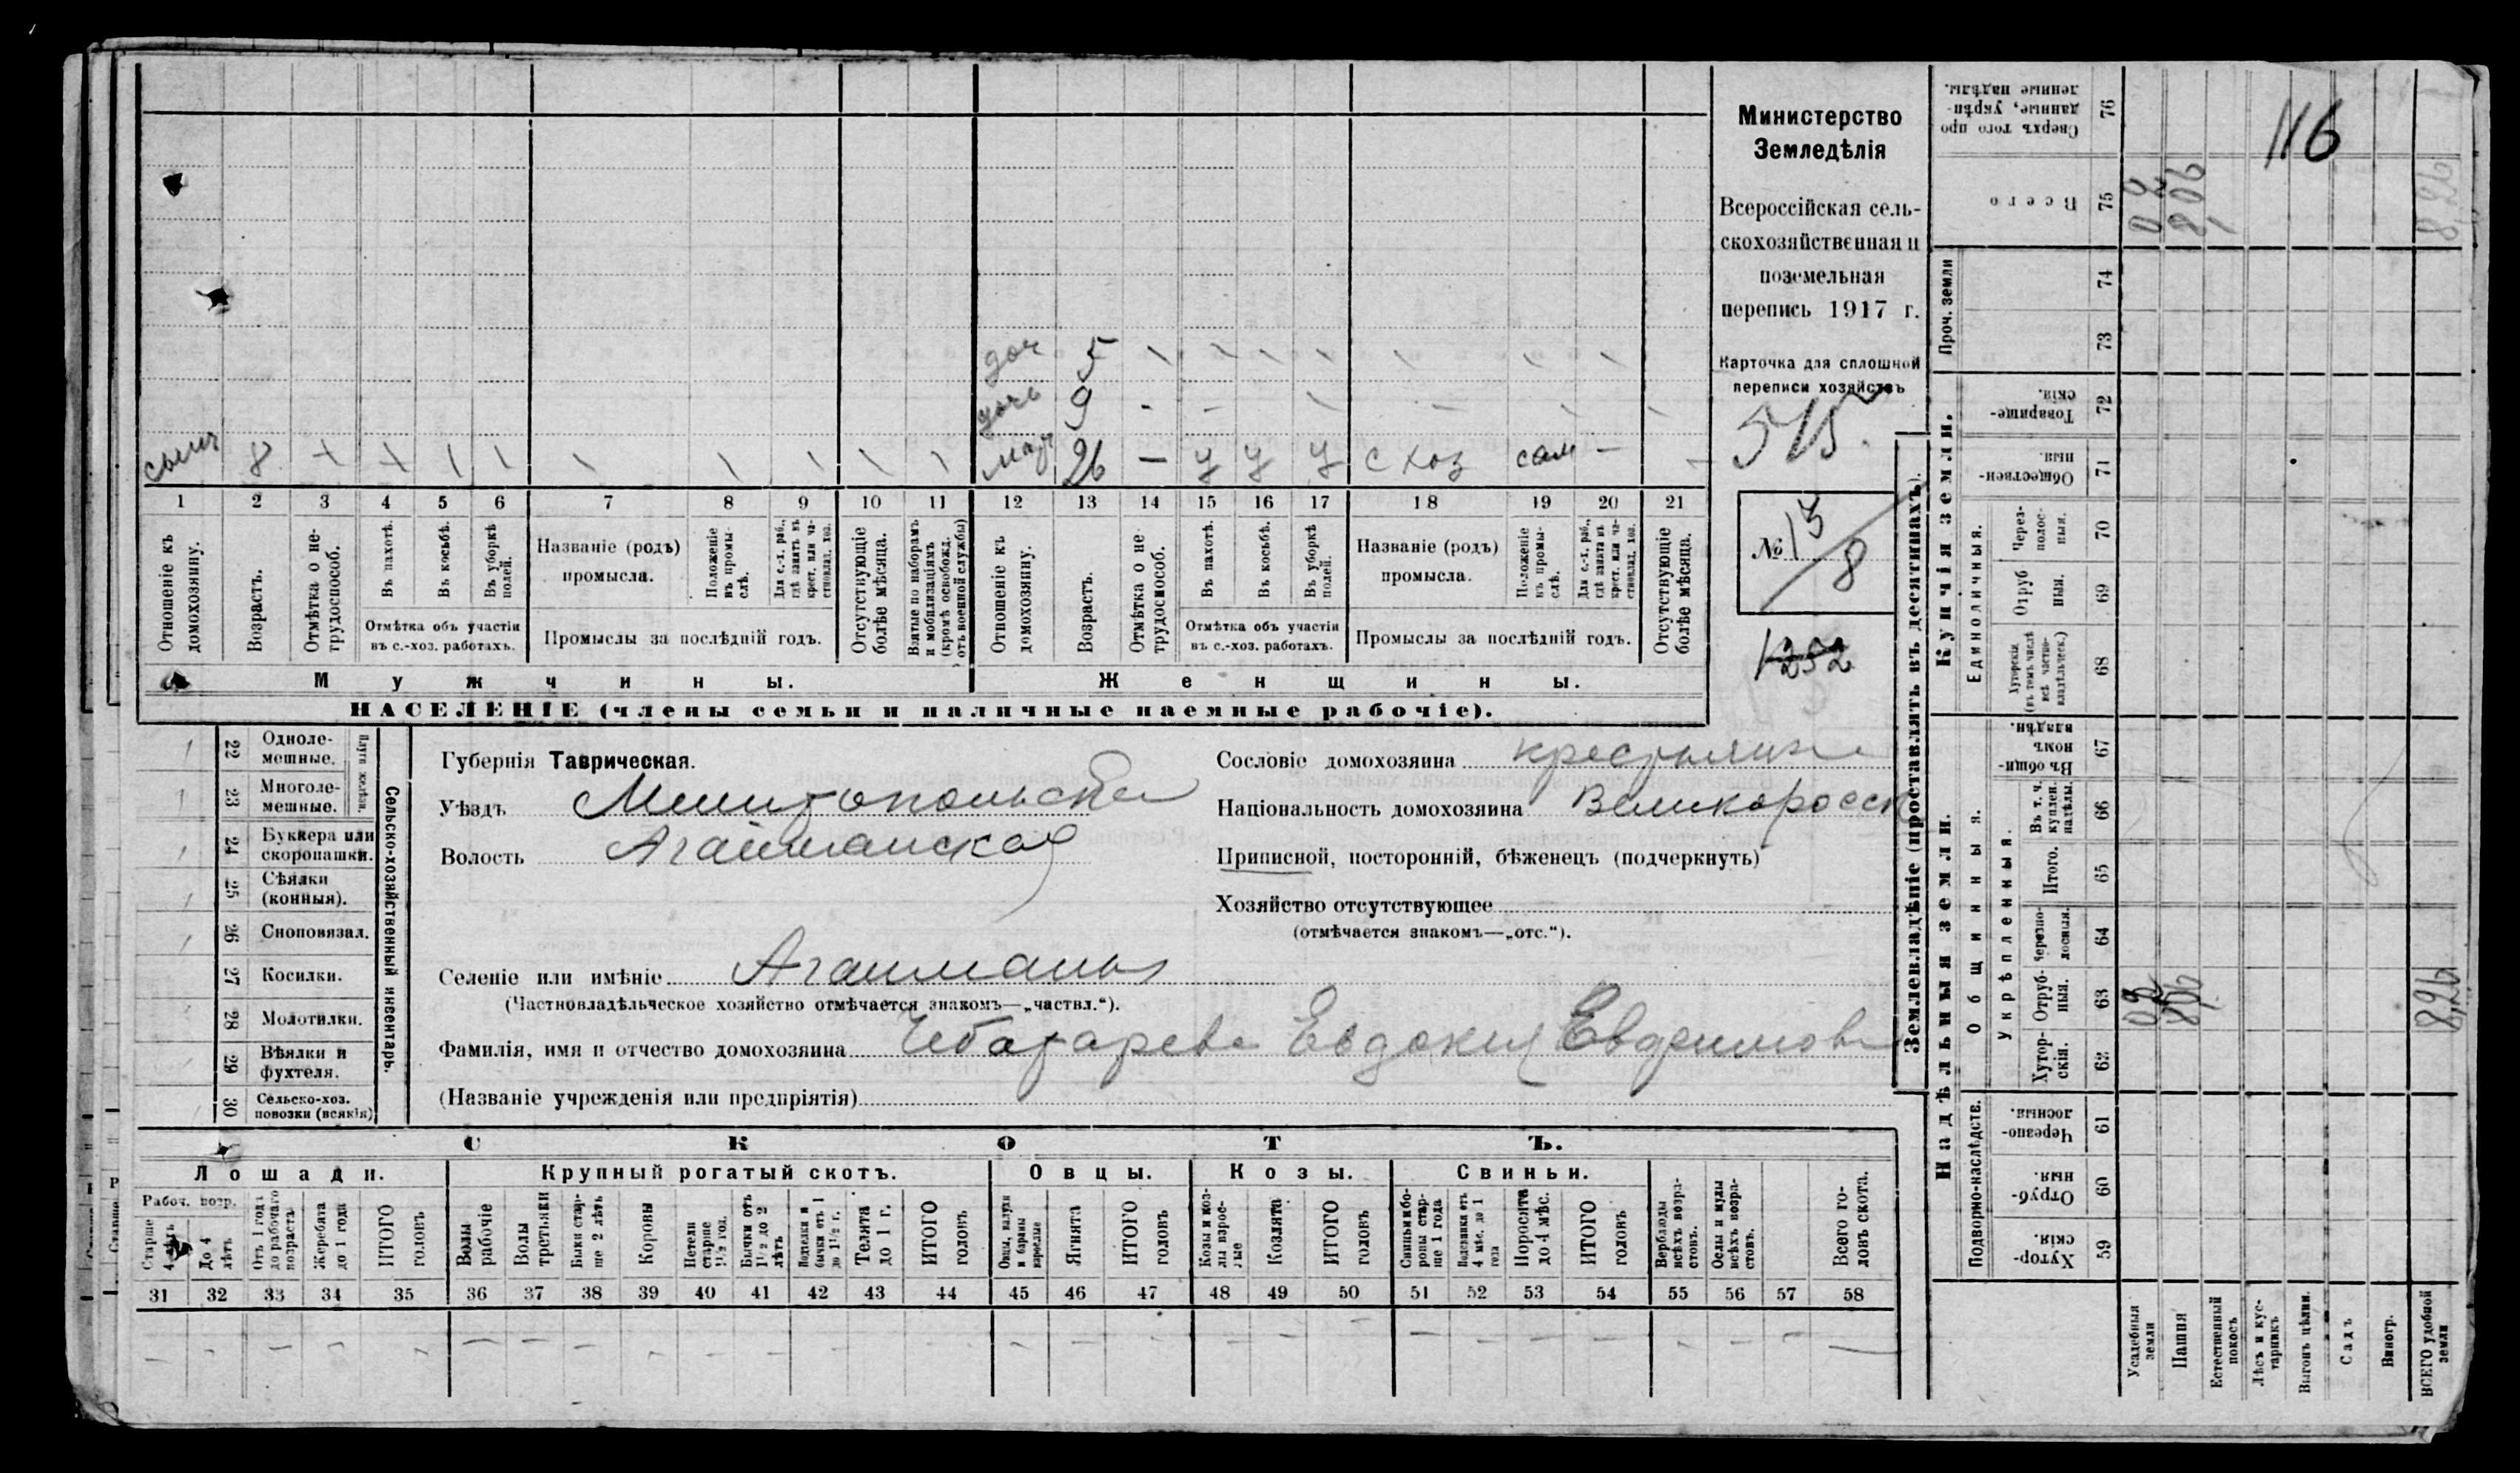 116
Министерство
Земледѣлія
Всероссійская сель-
скохозяйственная и
поземельная
перепись 1917 г.
Карточка для сплошной
переписи хозяйствъ
515.
№ 13/8
1252
доч 5 \ \ \ \ \ \ \ \
дочь 9 - - \ - \ \
сынъ 8
26 — у у у с хоз сам — -
1 2 3 4 5 6 7 8 9 10 11 12 13 14 15 16 17 18 19 20 21
Отношеніе къ домохозяину.
Возрастъ.
Отмѣтка о не-трудоспособ.
Въ пахотѣ.
Въ косьбѣ.
Въ уборкѣ полей.
Отмѣтка объ участіи
въ с.-хоз. работахъ.
Названіе (родъ)
промысла.
Положеніе въ промы-слѣ.
Для с.-х. раб., гдѣ занятъ въ крест. или ча-стновлад. хоз.
Промыслы за послѣдній годъ.
Отсутствующіе болѣе мѣсяца.
Взятые по наборамъ и мобилизаціямъ (кромѣ освобожд. отъ военной службы)
Отношеніе къ домохозяину.
Возрастъ.
Отмѣтка о не трудоспособ.
Въ пахотѣ.
Въ косьбѣ.
Въ уборкѣ полей.
Отмѣтка объ участіи
въ с.-хоз. работахъ.
Названіе (родъ)
промысла.
Положеніе въ промы-слѣ.
Для с.-х. раб., гдѣ занята въ крест. или ча-стновлад. хоз.
Промыслы за послѣдній годъ.
Отсутствующіе болѣе мѣсяца.
Мужчины. Женщины.
НАСЕЛЕНІЕ (члены семьи и наличные наемные рабочіе).
22 Одноле-мешные.
23 Многоле-мешные.
Плуги желѣзн.
24 Буккера или скоропашки.
25 Сѣялки (конныя).
26 Сноповязал.
27 Косилки.
28 Молотилки.
29 Вѣялки и фухтеля.
30 Сельско-хоз. повозки (всякія)
Сельско-хозяйственный инвентарь.
Губернія Таврическая.
Уѣздъ Мелитопольскій
Волость Агайманская
Селеніе или имѣніе Агайманы
(Частновладѣльческое хозяйство отмѣчается знакомъ—„частвл.“).
Фамилія, имя и отчество домохозяина Чеботарева Евдокия
(Названіе учрежденія или предпріятія)
Сословіе домохозяина крестьянин
Національность домохозяина Великоросс
Приписной, посторонній, бѣженецъ (подчеркнуть)
Хозяйство отсутствующее
(отмѣчается знакомъ—„отс.“).
СКОТЪ.
Лошади. Крупный рогатый скотъ. Овцы. Козы. Свиньи.
Рабоч. возр.
Старше 4 лѣтъ
До 4 лѣтъ
Отъ 1 года до рабочаго возраста
Жеребята до 1 года
ИТОГО головъ
Волы рабочіе
Волы третьяки
Быки стар-ше 2 лѣтъ
Коровы
Нетели старше 1½ год.
Бычки отъ 1½ до 2 лѣтъ
Подтелки и бычки отъ 1 до 1½ г.
Телята до 1 г.
ИТОГО головъ
Овцы, валухи и бараны взрослые
Ягнята
ИТОГО головъ
Козы и коз-лы взрос-лые
Козлята
ИТОГО головъ
Свиньи и бо-ровы стар-ше 1 года
Подсвинки отъ 4 мѣс. до 1 года
Поросята до 4 мѣс.
ИТОГО головъ
Верблюды всѣхъ возра-стовъ.
Ослы и мулы всѣхъ возра-стовъ.
Всего го-ловъ скота.
31 32 33 34 35 36 37 38 39 40 41 42 43 44 45 46 47 48 49 50 51 52 53 54 55 56 57 58
Землевладѣніе (проставлять въ десятинахъ).
Надѣльныя земли. Купчія земли.
Подворно-наслѣдств.
Общинныя.
Укрѣпленныя.
Единоличныя.
Проч. земли
Хутор-скія. 59
Отруб-ныя 60
Черезпо-лосныя. 61
Хутор-скія. 62
Отруб-ныя. 63
Черезпо-лосныя. 64
Итого. 65
Въ т. ч. куплен. надѣлы. 66
Въ общин-номъ владѣн. 67
Хуторскія (въ томъ числѣ всѣ частно-владѣльческ.) 68
Отруб ныя. 69
Через-полос-ныя. 70
Обществен-ныя. 71
Товарище-скія. 72
73
74
Всего 75
Сверхъ того про данные, укрѣп-ленные надѣлы. 76
Усадебныя земли
Пашня
Естественный покосъ
Лѣсъ и кус-тарникъ
Выгонъ цѣлин.
Садъ
Виногр.
ВСЕГО удобной земли
02
806
8,26
02
806
8,26